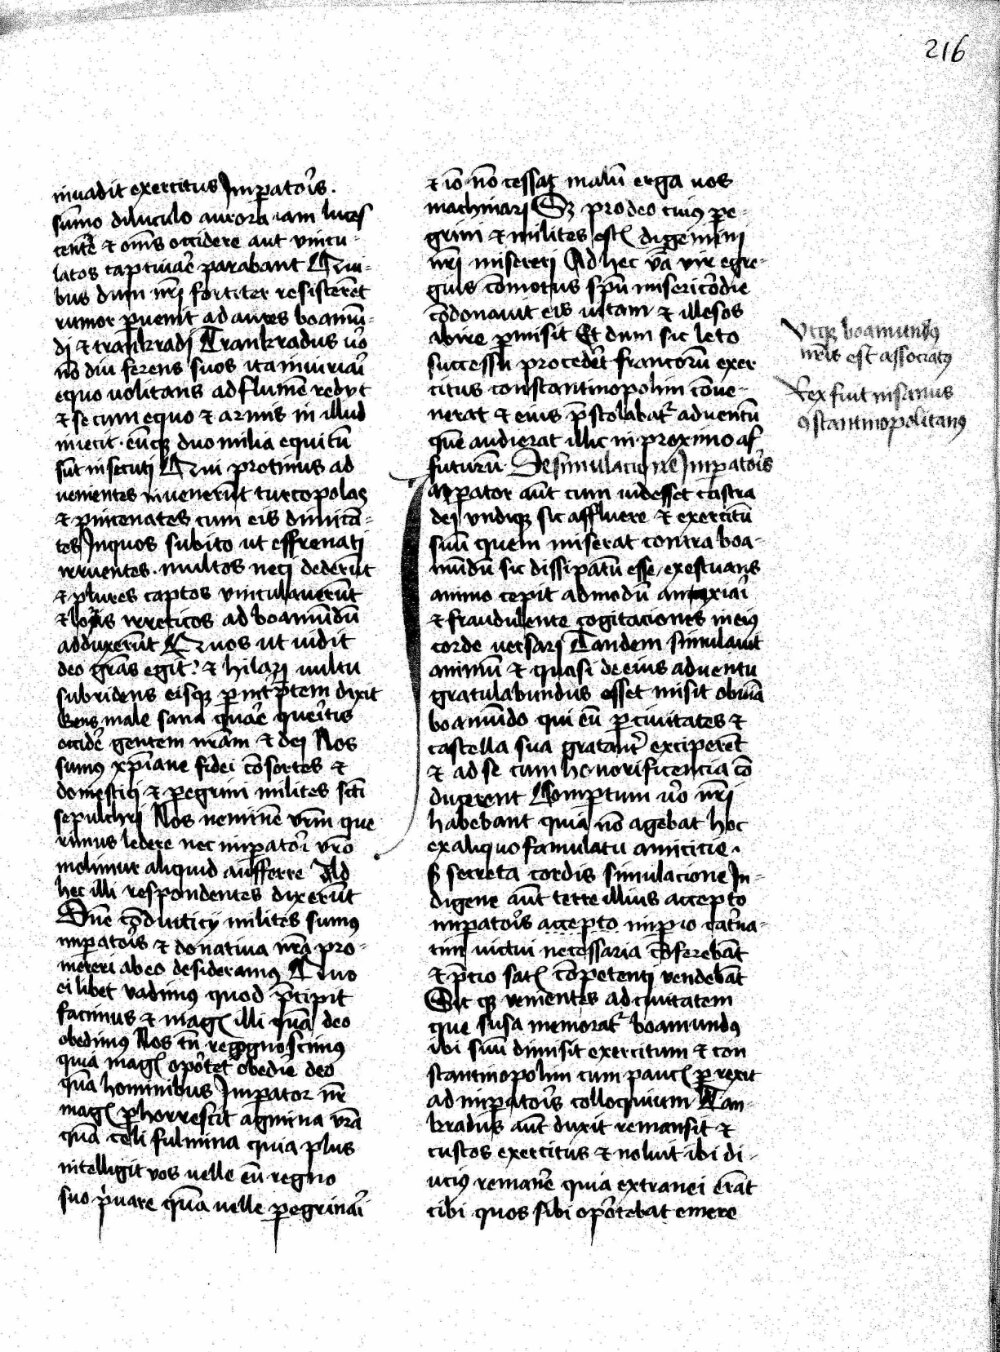 216
inuadit exercitus Impatoris.
sūmo diluculo aurora iam luces
cente & om̄s occidere aut vincu-
latos captiuare parabant Qui-
bus dum nr̄i fortiter resisterēt
rumor puenit ad aures boamū-
di & trankradi Trankradus uō
nō diu ferens suos ita iniuriari
equo uolitans ad flumen redyt
& se cum equo & armis in illud
iniecit. eūqꝫ duo milia equitū
sūt insecuti Qui protinus ad
uenientes inuenerūt turcopolas
& pincenates cum eis dimicā-
tes Inquos subito ut effrenati
irruentes. multos neci dederūt
& plures captos vinculauerūt
& loris irreticos ad boamūdū
adduxerūt Quos ut uidit
deo grās egit. & hilari uultu
subridens eisqꝫ p intp̄tem dixit
Gens male sana quare queritis
occidē gentem nrām & dei Nos
sumꝰ xp̄iane fidei cōsortes &
domestici & pegrini milites scī
sepulchri Nos neminē vrm̄ que
rimus ledere nec impatori vrō
molimur aliquid aufferre Ad
hec illi respondentes dixerūt
Dn̄e cōducticij milites sumus
impatoris & donatiua nrā pro-
mereri ab eo desideramꝰ Quo
ei libet vadimus quod p̄cipit
facimus & magꝭ illi quā deo
obedimꝰ Nos tn̄ recognoscimꝰ
quia magꝭ oportet obedire deo
quā hominibus Impator nr̄
magꝭ phorrescit agmina vrā
quā celi fulmina quia plus
intelligit vos uelle eū regno
suo priuare quā uelle pegrinari
& iō nō cessat malū erga uos
machinari Sꝫ pro deo cuiꝰ pe-
grini & milites estꝭ digemini
nr̄i misereri Ad hec vā vir egre-
gius cōmotus spū misericordie
cōdonauit eis uitam & illesos
abire pmisit Et dum sic leto
successu procederet francorū exer
citus constantinopolim cōue-
nerat & eius p̄stolabat adventū
quē audierat illic in proximo af
futurū. De simulacione Impatoris
Impator aūt cum uidesset castra
dei vndiqꝫ sic affluere & exercitū
suū quem miserat contra boa-
mūdū sic dissipatū esse exestuans
animo cepit admodū anxiari
& fraudulente cogitaciones in eiꝰ
corde uersari Tandem simulauit
animū & quasi de eius aduentu
gratulabundus esset misit obuiā
boamūdo qui eū p ciuitates &
castella sua gratanter exciperēt
& ad se cum honorificencia cō
ducerent Comptum uō nr̄i
habebant quia nō agebat hoc
ex aliquo famulatu amicicie.
sꝫ secreta cordis simulacione In-
digene aūt terre illius accepto
impatoris accepto impio cateruа-
tim uictui necessaria cōferebāt
& p̄cio satꝭ competenti vendebāt
Sicqꝫ venientes ad ciuitatem
que susa memorat boamundꝰ
ibi suū dimisit exercitum & con
stantinopolim cum paucꝭ prexit
ad impatoris colloquium Tan-
kradus aūt dux remansit &
custos exercitus & noluit ibi di-
uciꝰ remanē quia extranei erāt
cibi quos sibi oportebat emere
Vtrqꝫ boamundꝰ
nrīs est associatꝰ
Rex fuit insanus
ꝯstantinopolitanꝰ